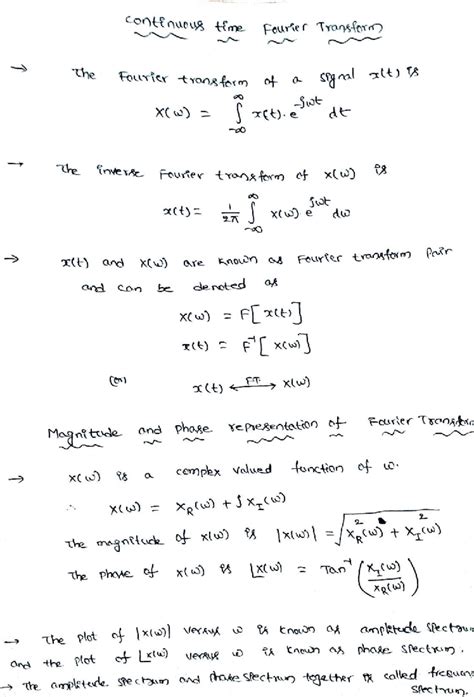 Continuous time Fourier Transform
→ The Fourier transform of a signal x(t) is
X(ω) = ∫_{-∞}^{∞} x(t). e^{-jωt} dt
→ The inverse Fourier transform of X(ω) is
x(t) = 1/2π ∫_{-∞}^{∞} X(ω) e^{jωt} dω
→ x(t) and X(ω) are known as Fourier transform pair
and can be denoted as
X(ω) = F[x(t)]
x(t) = F⁻¹[X(ω)]
(or) x(t) ←F.T→ X(ω)
Magnitude and phase representation of Fourier Transform
→ X(ω) is a complex valued function of ω.
∴ X(ω) = X_R(ω) + j X_I(ω)
The magnitude of X(ω) is |X(ω)| = √(X_R²(ω) + X_I²(ω))
The phase of X(ω) is ∠X(ω) = Tan⁻¹(X_I(ω)/X_R(ω))
→ The plot of |X(ω)| versus ω is known as amplitude spectrum
and the plot of ∠X(ω) versus ω is known as phase spectrum.
→ The amplitude spectrum and phase spectrum together is called frequency
spectrum.